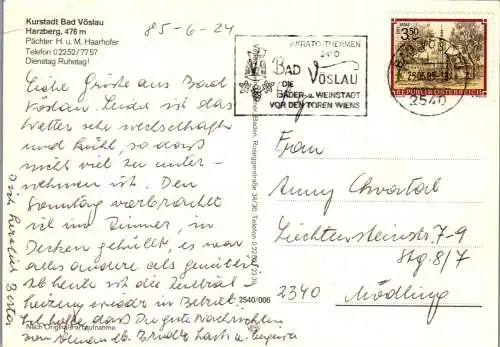 Kurstadt Bad Vöslau
Harzberg, 476 m
Pächter H. u. M. Haarhofer
Telefon 0 22 52/77 57
Dienstag Ruhetag!
85-6-24
AKRATO-THERMEN
24°C
BAD VÖSLAU
DIE
BÄDER- u. WEINSTADT
VOR DEN TOREN WIENS
BAD VÖSLAU
25.06.85
2540
S 3.50
REPUBLIK ÖSTERREICH
Liebe Grüße aus Bad
Vöslau. Leider ist das
Wetter sehr wechselhaft
und kühl, so daß
nicht viel zu unter-
nehmen ist. Den
Sonntag verbrachte
ich im Zimmer, in
Decken gehüllt, es war
alles andere als gemütlich
Ab heute ist die Zentral-
heizung wieder in Betrieb.
Ich hoffe, dass Du gute Nachrichten
von
Frau
Anny Chvatal
Liechtensteinstr. 7-9
Stg. 8/7
2340 Mödling
Baden, Roseggerstraße 34/36, Telefon 0 22 52/
2540/006
Nach Original-Farbaufnahme